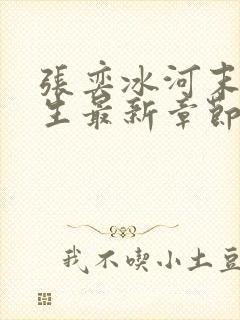 張奕冰河末
生最新章節
我不喫小土豆